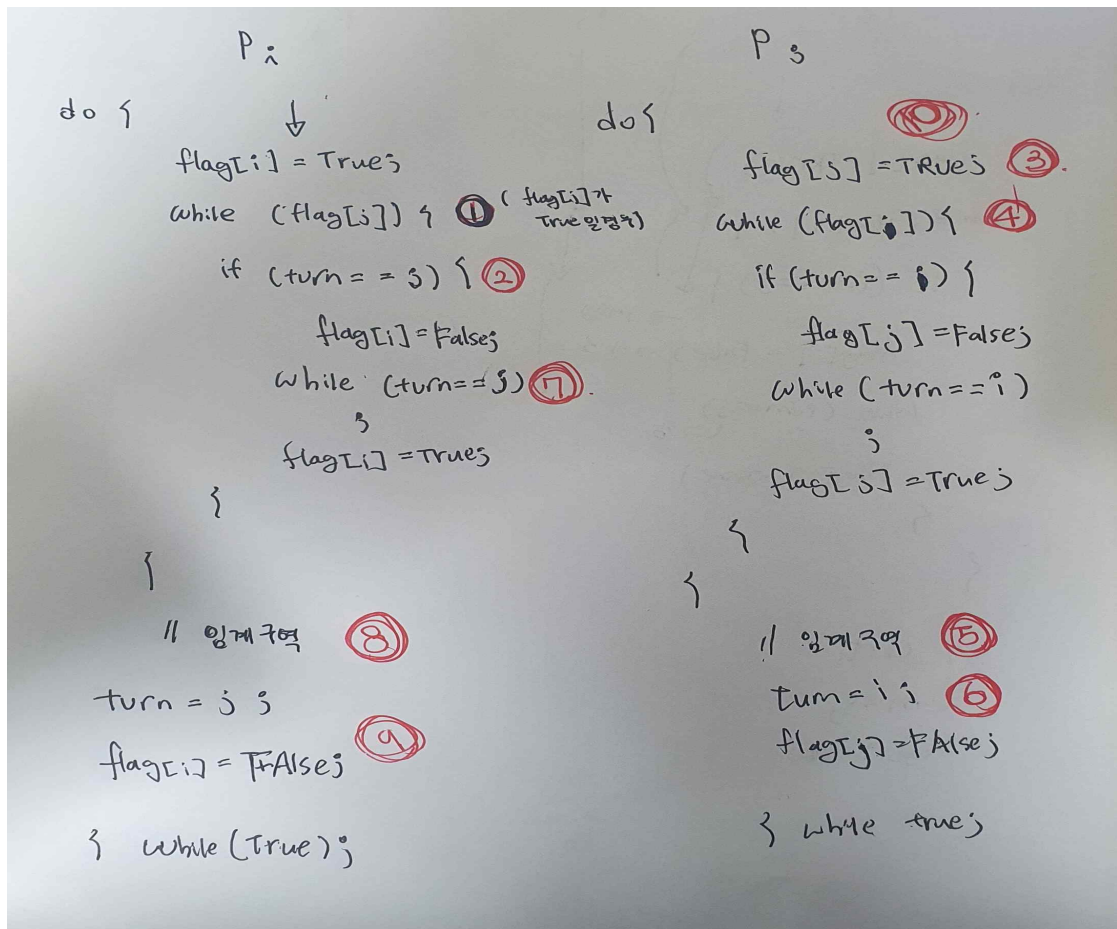 Pi
do {
↓
flag[i] = True;
while (flag[j]) { ① ( flag[j]가
True일 경우)
if (turn == j) { ②
flag[i] = False;
while (turn == j) ⑦.
;
flag[i] = True;
{
{
// 임계구역 ⑧
turn = j ;
flag[i] = FAlse; ⑨
} while (True);
Pj
do {
⑩
flag[j] = TRUe; ③.
while (flag[i]) { ④
if (turn == i) {
flag[j] = False;
while (turn == i)
;
flag[j] = True;
{
{
// 임계구역 ⑤
turn = i ; ⑥
flag[j] = FAlse;
} while true;